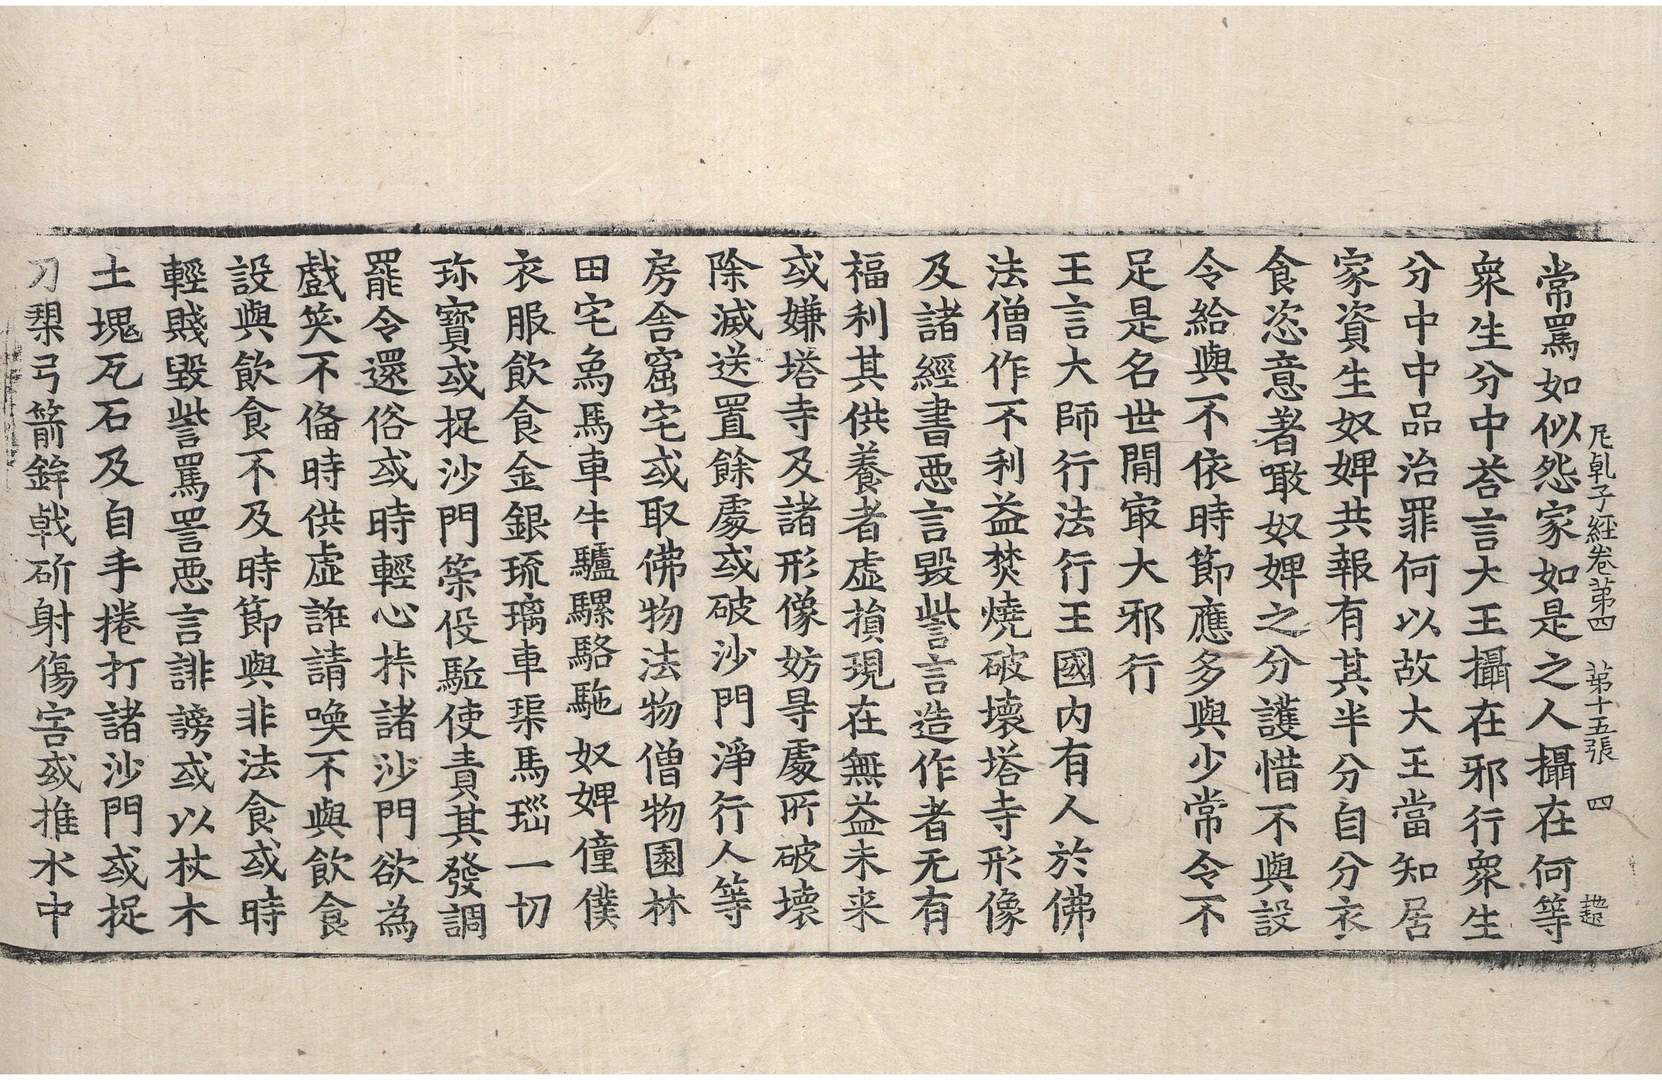 尼乹子經卷苐四　苐十五張　四　趂
常罵如似怨家如是之人攝在何等
衆生分中荅言大王攝在邪行衆生
分中中品治罪何以故大王當知居
家資生奴婢共報有其半分自分衣
食恣意著噉奴婢之分護惜不與設
令給與不依時節應多與少常令不
足是名世間㝡大邪行
王言大師行法行王國内有人於佛
法僧作不利益焚燒破壞塔寺形像
及諸經書惡言毀呰言造作者无有
福利其供養者虛損現在無益未来
或嫌塔寺及諸形像妨㝵處所破壞
除滅送置餘處或破沙門淨行人等
房舍窟宅或取佛物法物僧物園林
田宅象馬車牛驢騾駱駞奴婢僮僕
衣服飲食金銀琉璃車𤦲馬瑙一切
珎寶或捉沙門策役駈使責其發調
罷令還俗或時輕心㧒諸沙門欲為
戲笑不俻時供虛誑請喚不與飲食
設與飲食不及時節與非法食或時
輕賤毀訾罵詈惡言誹謗或以杖木
土塊瓦石及自手捲打諸沙門或捉
刀槊弓箭鉾戟斫射傷害或推水中